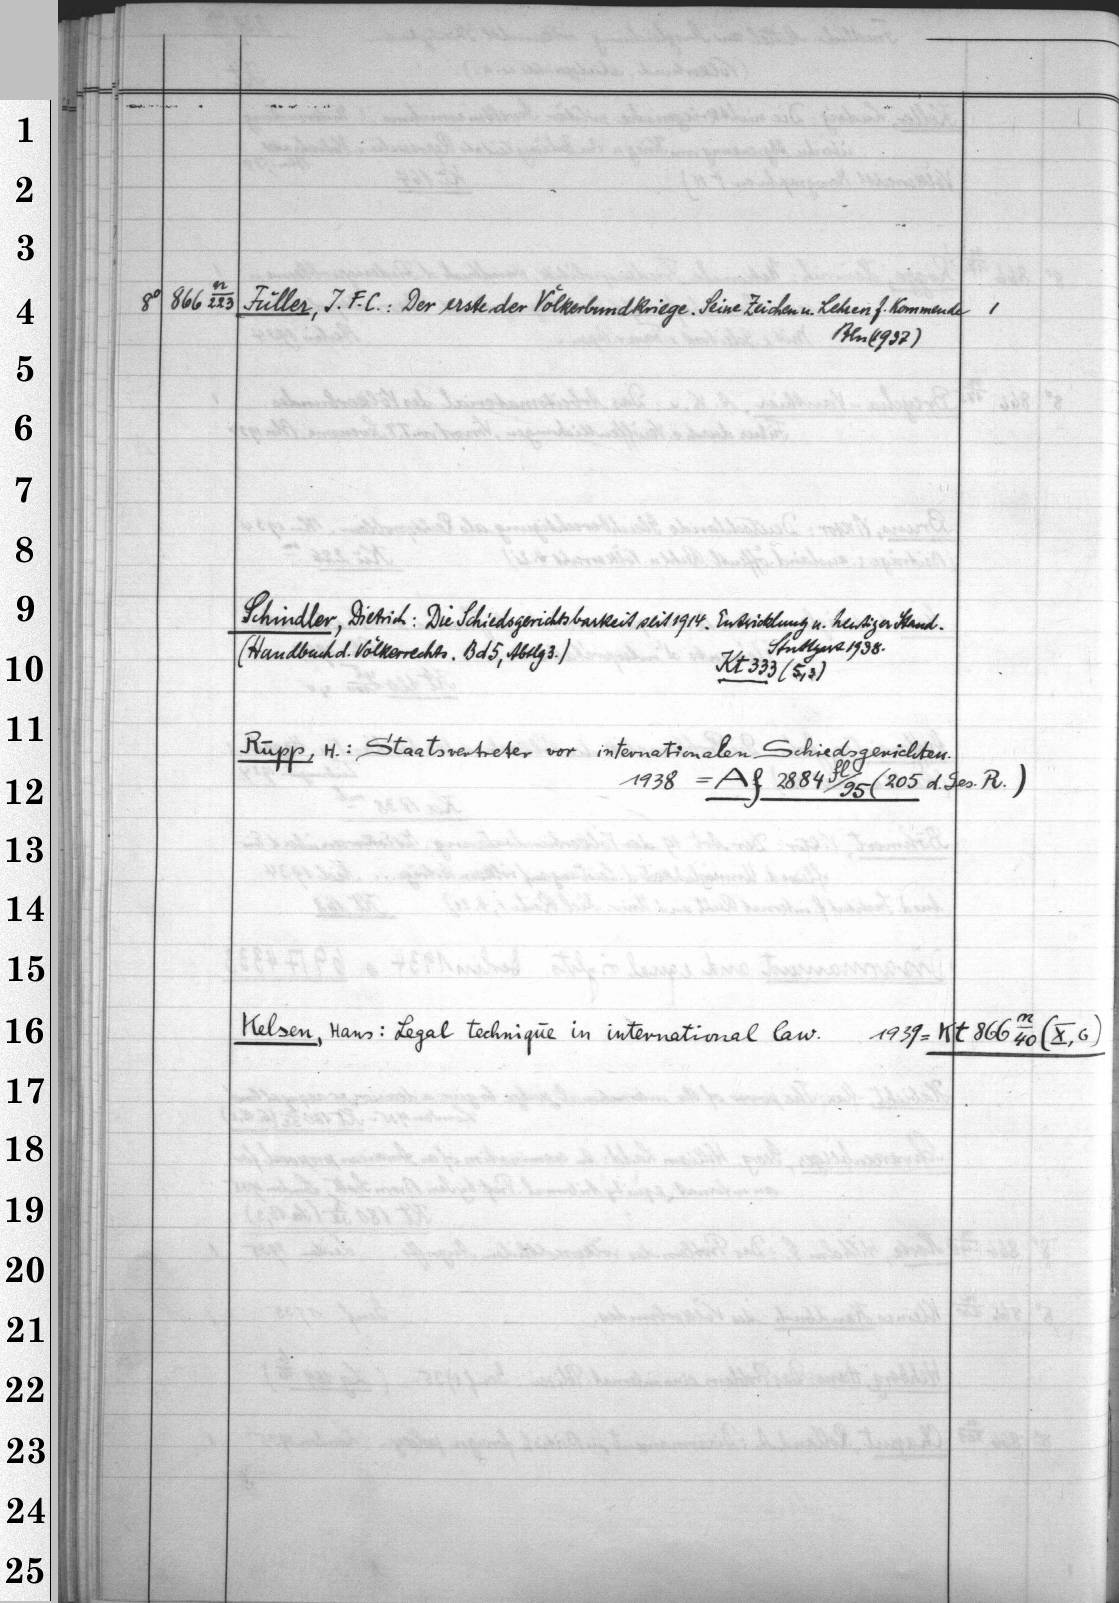 1
2
3
4
8° 866 n/223 Fuller, J. F. C.: Der erste der Völkerbundkriege. Seine Zeichen u. Lehren f. Kommende 1
Bln (1937)
5
6
7
8
9
Schindler, Dietrich: Die Schiedsgerichtsbarkeit seit 1914. Entwicklung u. heutiger Stand.
Stuttgart 1938.
10
(Handbuch d. Völkerrechts. Bd 5, Abtlg 3.) Kt 333 (5,3)
11
Rupp, H.: Staatsvertreter vor internationalen Schiedsgerichten.
12
1938 = Af 2884 fl/95 (205 d. Ges. R.)
13
14
15
16
Kelsen, Hans: Legal technique in international law. 1939 = Kt 866 m/40 (X, 6)
17
18
19
20
21
22
23
24
25